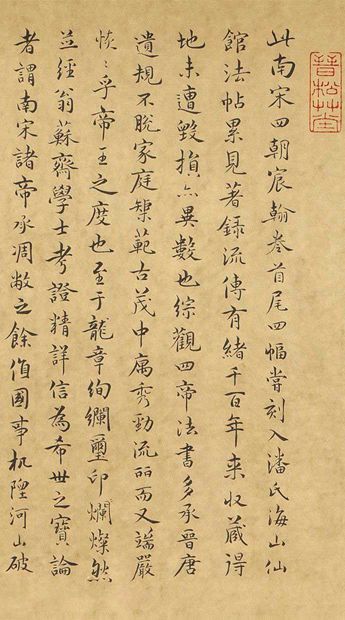 此南宋四朝宸翰卷首尾四幅嘗刻入潘氏海山仙
館法帖累見著錄流傳有緒千百年來收藏得
地未遭毀損亦異數也綜觀四帝法書多承晉唐
遺規不脫家庭榘範古茂中寓秀勁流丽而又端嚴
恢〻乎帝王之度也至于龍章絢斕璽印爛燦然
並經翁蘇齋學士考證精詳信為希世之寶論
者謂南宋諸帝承凋敝之餘值國事杌隉河山破